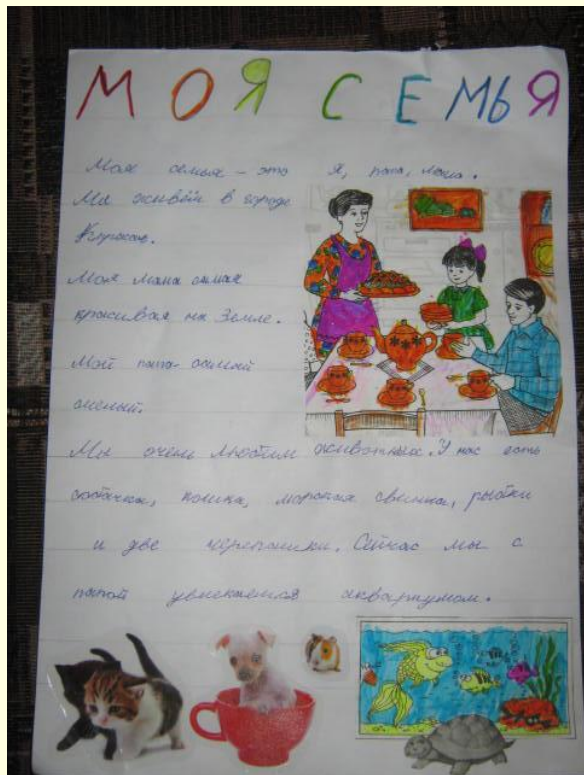 МОЯ СЕМЬЯ
Моя семья – это я, папа, мама.
Мы живём в городе
Моя мама самая
красивая на Земле.
Мой папа – самый
Мы очень любим животных. У нас есть
собачка, кошка, морская свинка, рыбки
и две черепашки. Сейчас мы с
папой увлекаемся аквариумом.